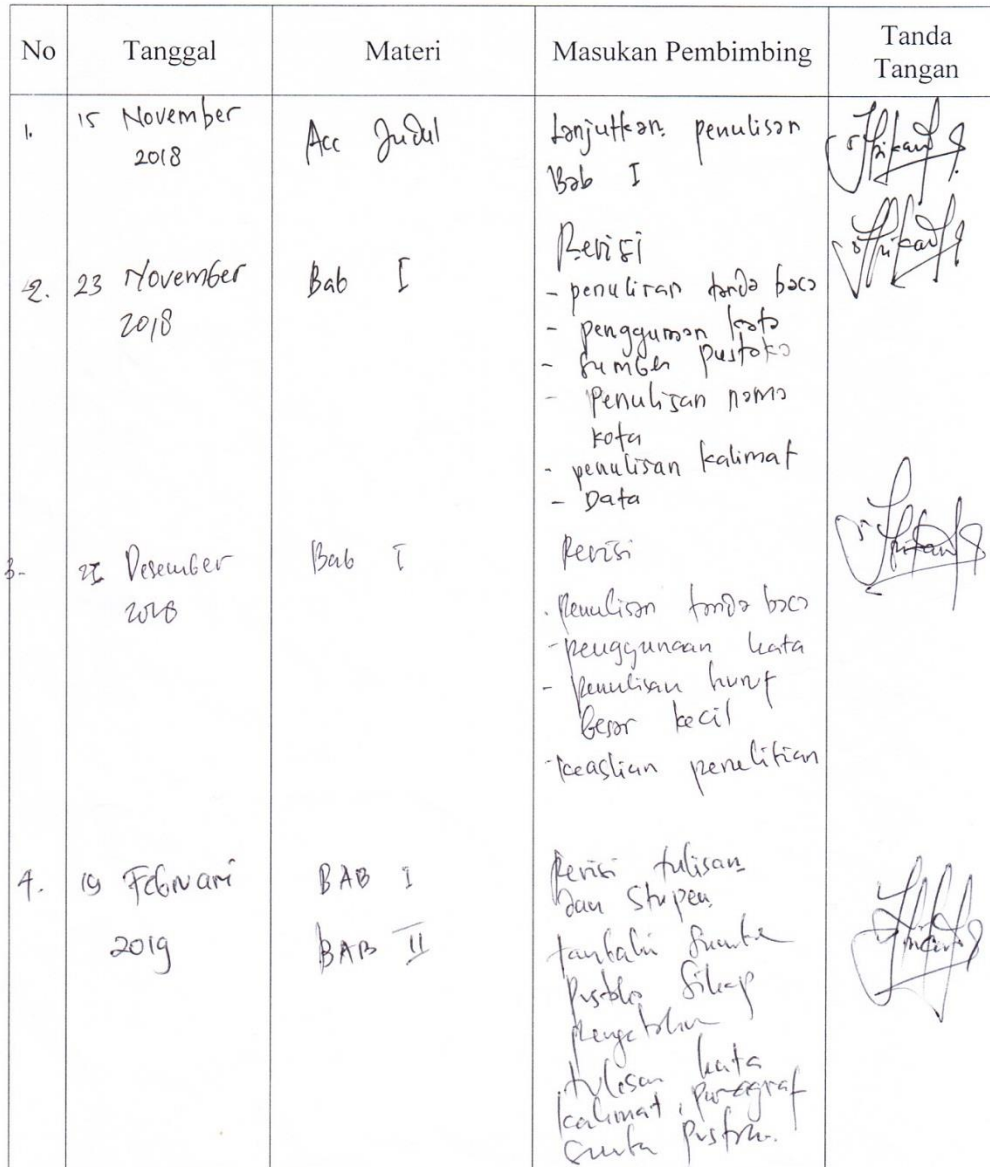 No Tanggal Materi Masukan Pembimbing Tanda Tangan
1. 15 November 2018
Acc Judul
Lanjutkan penulisan
Bab I
2. 23 November
2018
Bab I
Revisi
- penulisan tanda baca
- penggunaan kata
- Sumber pustaka
- Penulisan nama
kota
- penulisan kalimat
- Data
3. Desember
2018
Bab I
Revisi
- Penulisan tanda baca
- penggunaan kata
- penulisan huruf
besar kecil
- keaslian penelitian
4. 19 Februari
2019
BAB I
BAB II
Revisi tulisan
dan Stupen
pustaka Sikap
pengetahuan
tulisan kata
kalimat, paragraf